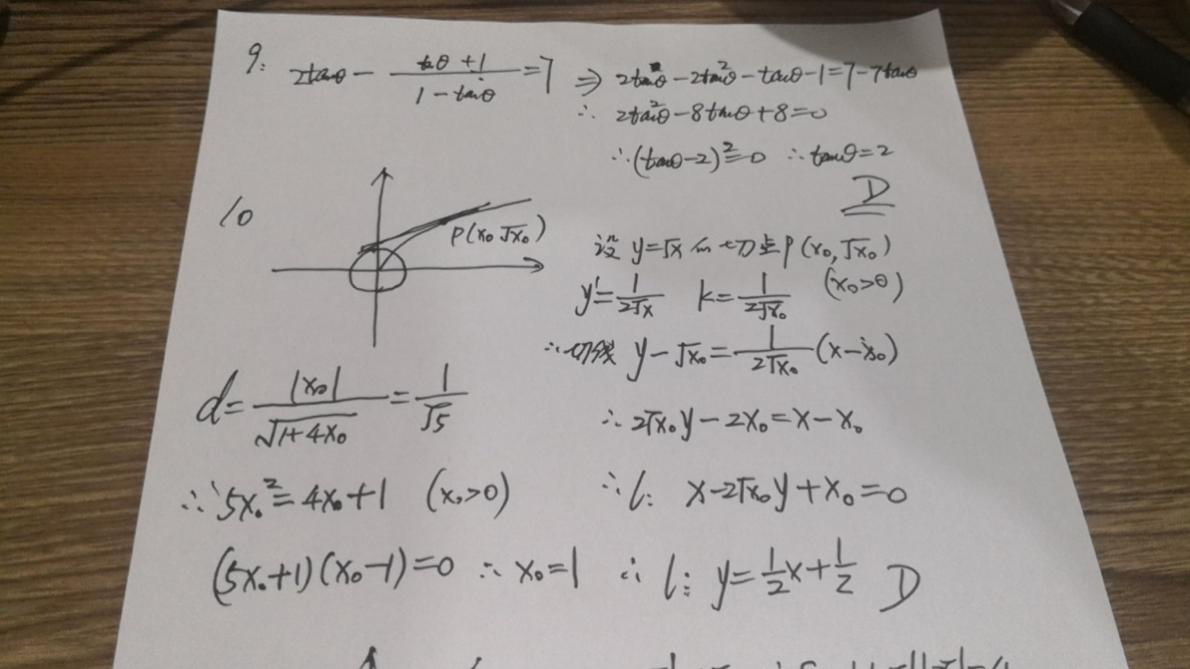 9. 2tanθ - (tanθ+1)/(1-tanθ) = 7 ⇒ 2tanθ-2tan²θ-tanθ-1=7-7tanθ
∴ 2tan²θ-8tanθ+8=0
∴(tanθ-2)²=0 ∴tanθ=2
D
10
P(x₀ √x₀)
设 y=√x 的切点P(x₀,√x₀)
y'=1/(2√x) k=1/(2√x₀) (x₀>0)
∴切线 y-√x₀=1/(2√x₀)(x-x₀)
d=|x₀|/√(1+4x₀)=1/√5
∴2√x₀y-2x₀=x-x₀
∴5x₀²=4x₀+1 (x₀>0)
∴l: x-2√x₀y+x₀=0
(5x₀+1)(x₀-1)=0 ∴x₀=1 ∴l: y=1/2x+1/2 D